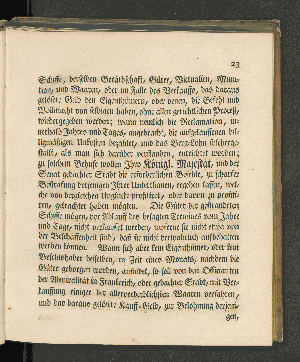 23
Schiffe, derselben Geräthschaft, Güter, Victualien, Muni-
tion, und Waaren, oder im Falle des Verkauffs, das daraus
gelösete Geld den Eigenthümern, oder denen, die Befehl und
Vollmacht von selbigen haben, ohne allen gerichtlichen Proceß,
wiedergegeben werden; wann nemlich die Reclamation, in-
nerhalb Jahres und Tages, angebracht, die aufgelauffenen bil-
ligmäßigen Unkosten bezahlet, und das Berg-Lohn solcherge-
stalt, als man sich darüber verstanden, entrichtet worden;
zu solchem Behufe wollen Ihro Königl. Majestät, und der
Senat gedachter Stadt die erforderlichen Befehle, zu scharfer
Bestrafung derjenigen Ihrer Unterthanen, ergehen lassen, wel-
che von dergleichen Unglücke profitiret, oder davon zu profiti-
ren, getrachtet haben mögten. Die Güter der gestrandeten
Schiffe mögen, vor Ablauff des besagten Termines vom Jahre
und Tage, nicht verkauffet werden, woferne sie nicht etwa von
der Beschaffenheit sind, daß sie nicht verwahrlich aufbehalten
werden können. Wann sich aber kein Eigenthümer, oder kein
Befehlshaber desselben, in Zeit eines Monats, nachdem die
Güter geborgen worden, anfindet, so soll von den Officianten
der Admiralität in Franckreich, oder gedachter Stadt, mit Ver-
kauffung einiger der allerverderblichsten Waaren verfahren,
und das daraus gelösete Kauff-Geld, zur Belohnung derjeni-
gen,